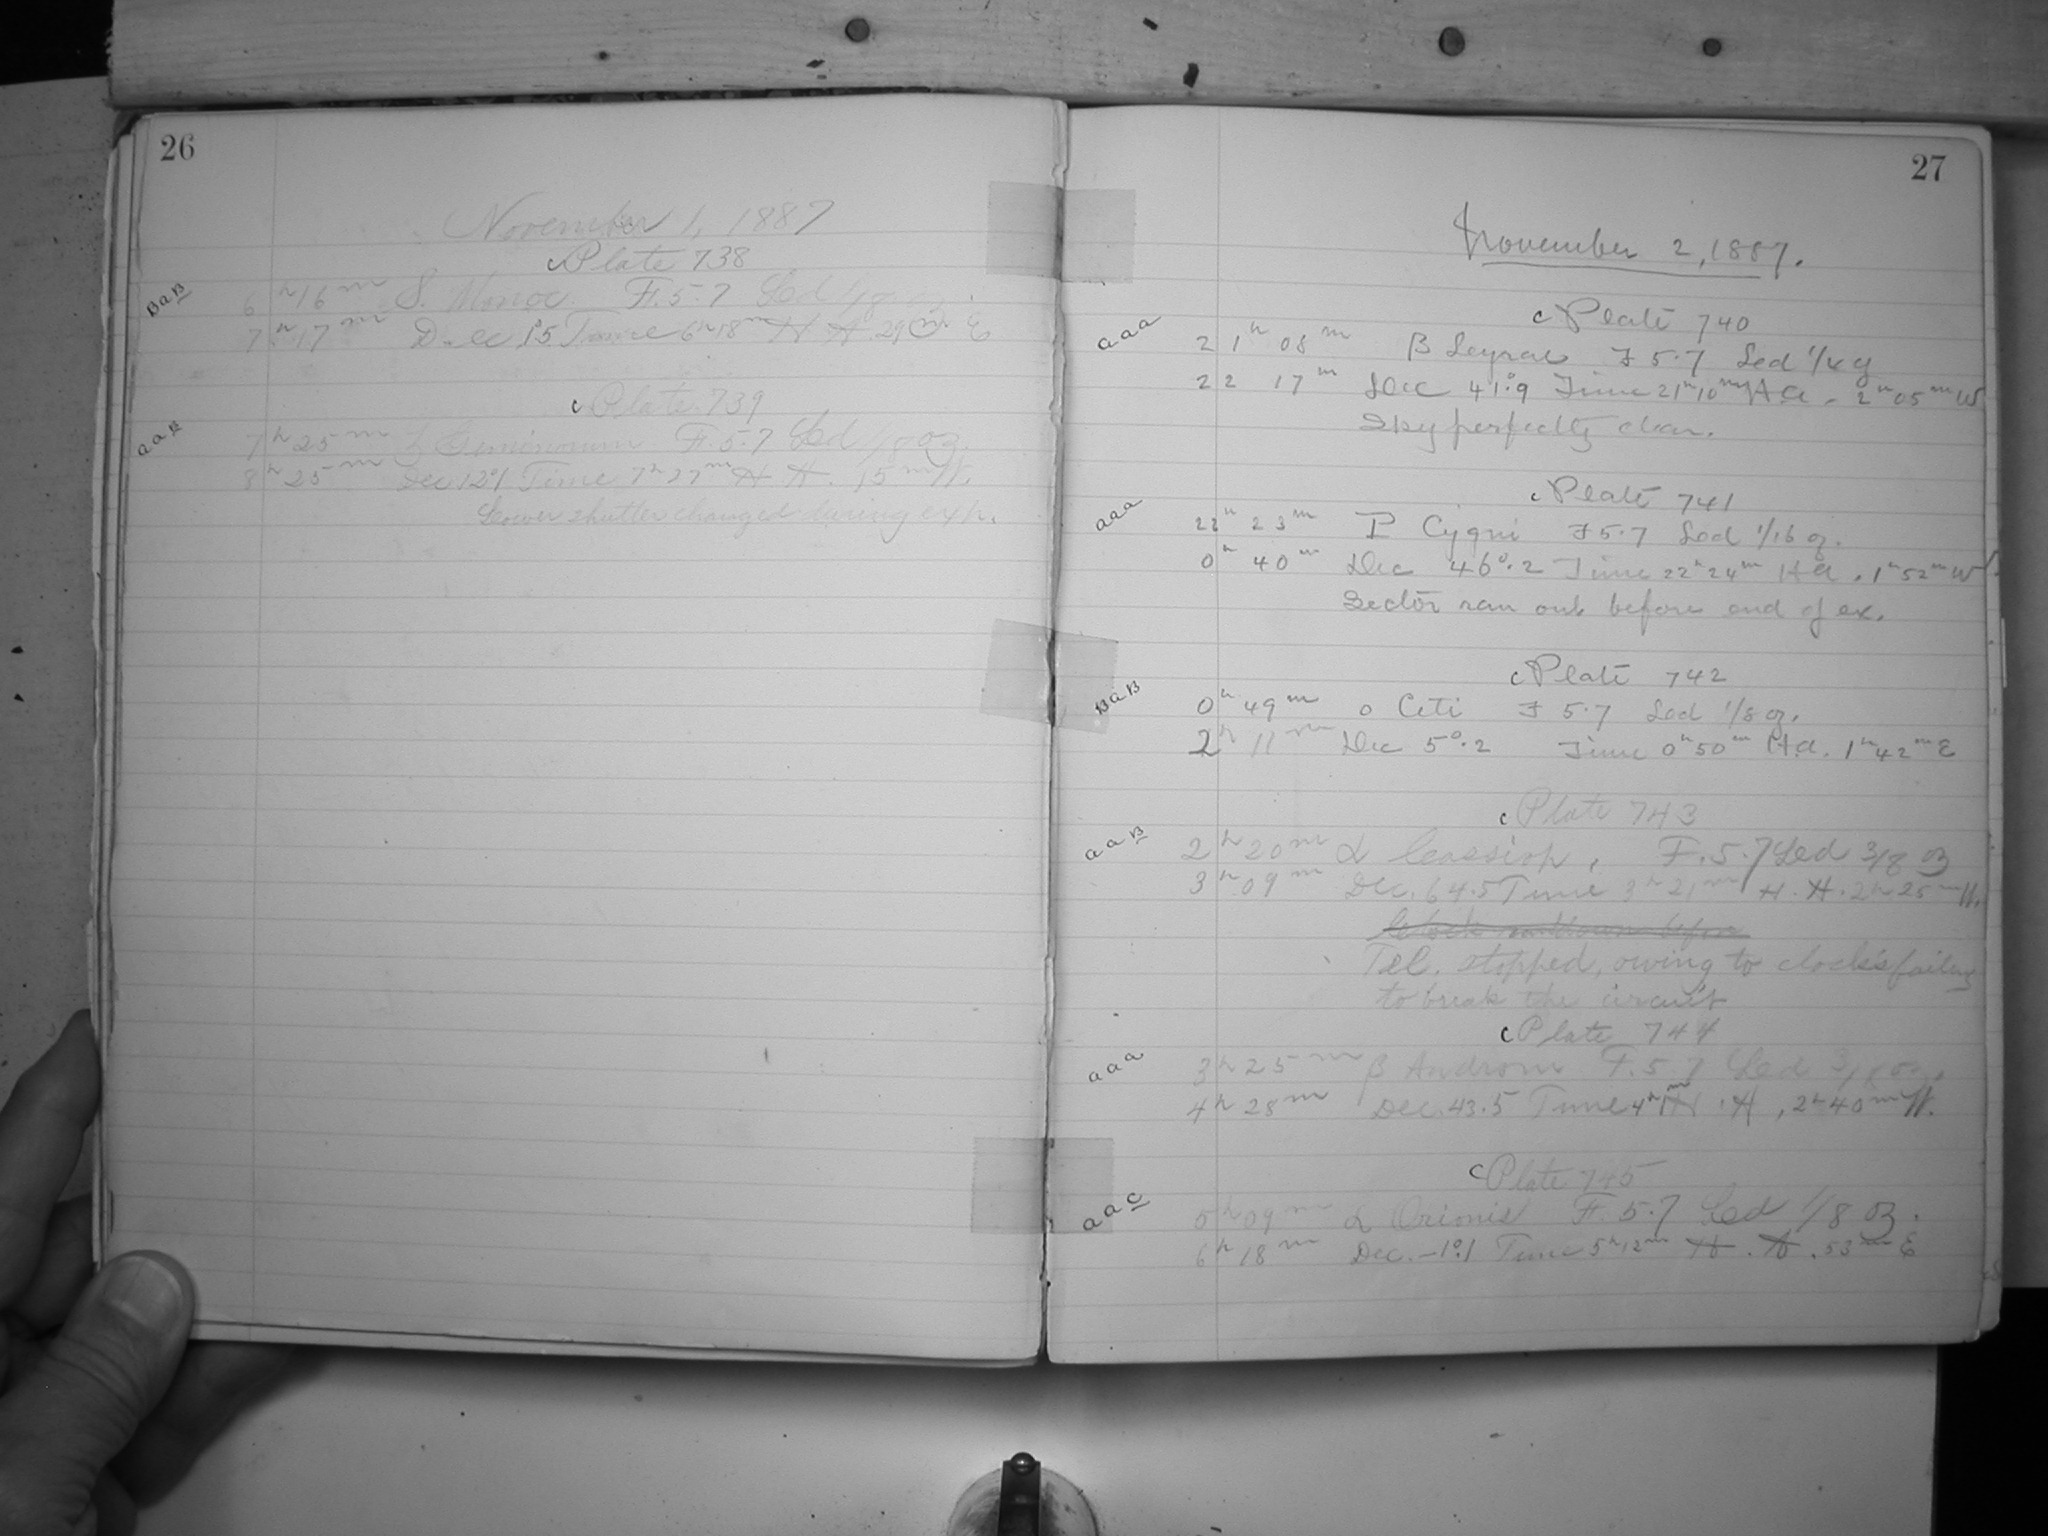 26
November 1, 1887
c Plate 738
BaB 6h 16m S. Monoc. F. 5.7 Sed 1/8 oz.
7h 17m Dec 15 Time 6h 18m H A 29m E
c Plate 739
aaB 7h 25m Geminorum F. 5.7 Sed 1/8 oz
8h 25m Dec 12°.1 Time 7h 27m H A. 15m W.
Lower shutter changed during exp.
27
November 2, 1887.
c Plate 740
aaa 21h 08m β Leyrae F 5.7 Sed 1/4 oz
22 17m Dec 41°.9 Time 21h 10m H a. 2h 05m W
Sky perfectly clear.
c Plate 741
aaa 22h 23m P Cygni F 5.7 Sed 1/16 oz.
0h 40m Dec 46°.2 Time 22h 24m H a. 1h 52m W
Sector ran out before end of ex.
c Plate 742
BaB 0h 49m o Ceti F 5.7 Sed 1/8 oz.
2h 11m Dec 5°.2 Time 0h 50m H a. 1h 42m E
c Plate 743
aaB 2h 20m α Cassiop. F. 5.7 Sed 3/8 oz
3h 09m Dec. 64.5 Time 3h 21m H. A. 2h 25m W.
Tel. stopped, owing to clock's failing
to break the circuit
c Plate 744
aaa 3h 25m β Androm F. 5.7 Sed 3/8 oz.
4h 28m Dec. 43.5 Time 4h 1m H. A, 2h 40m W.
c Plate 745
aac 5h 09m α Orionis F. 5.7 Sed 1/8 oz.
6h 18m Dec. -1°.1 Time 5h 12m H. A. 53m E